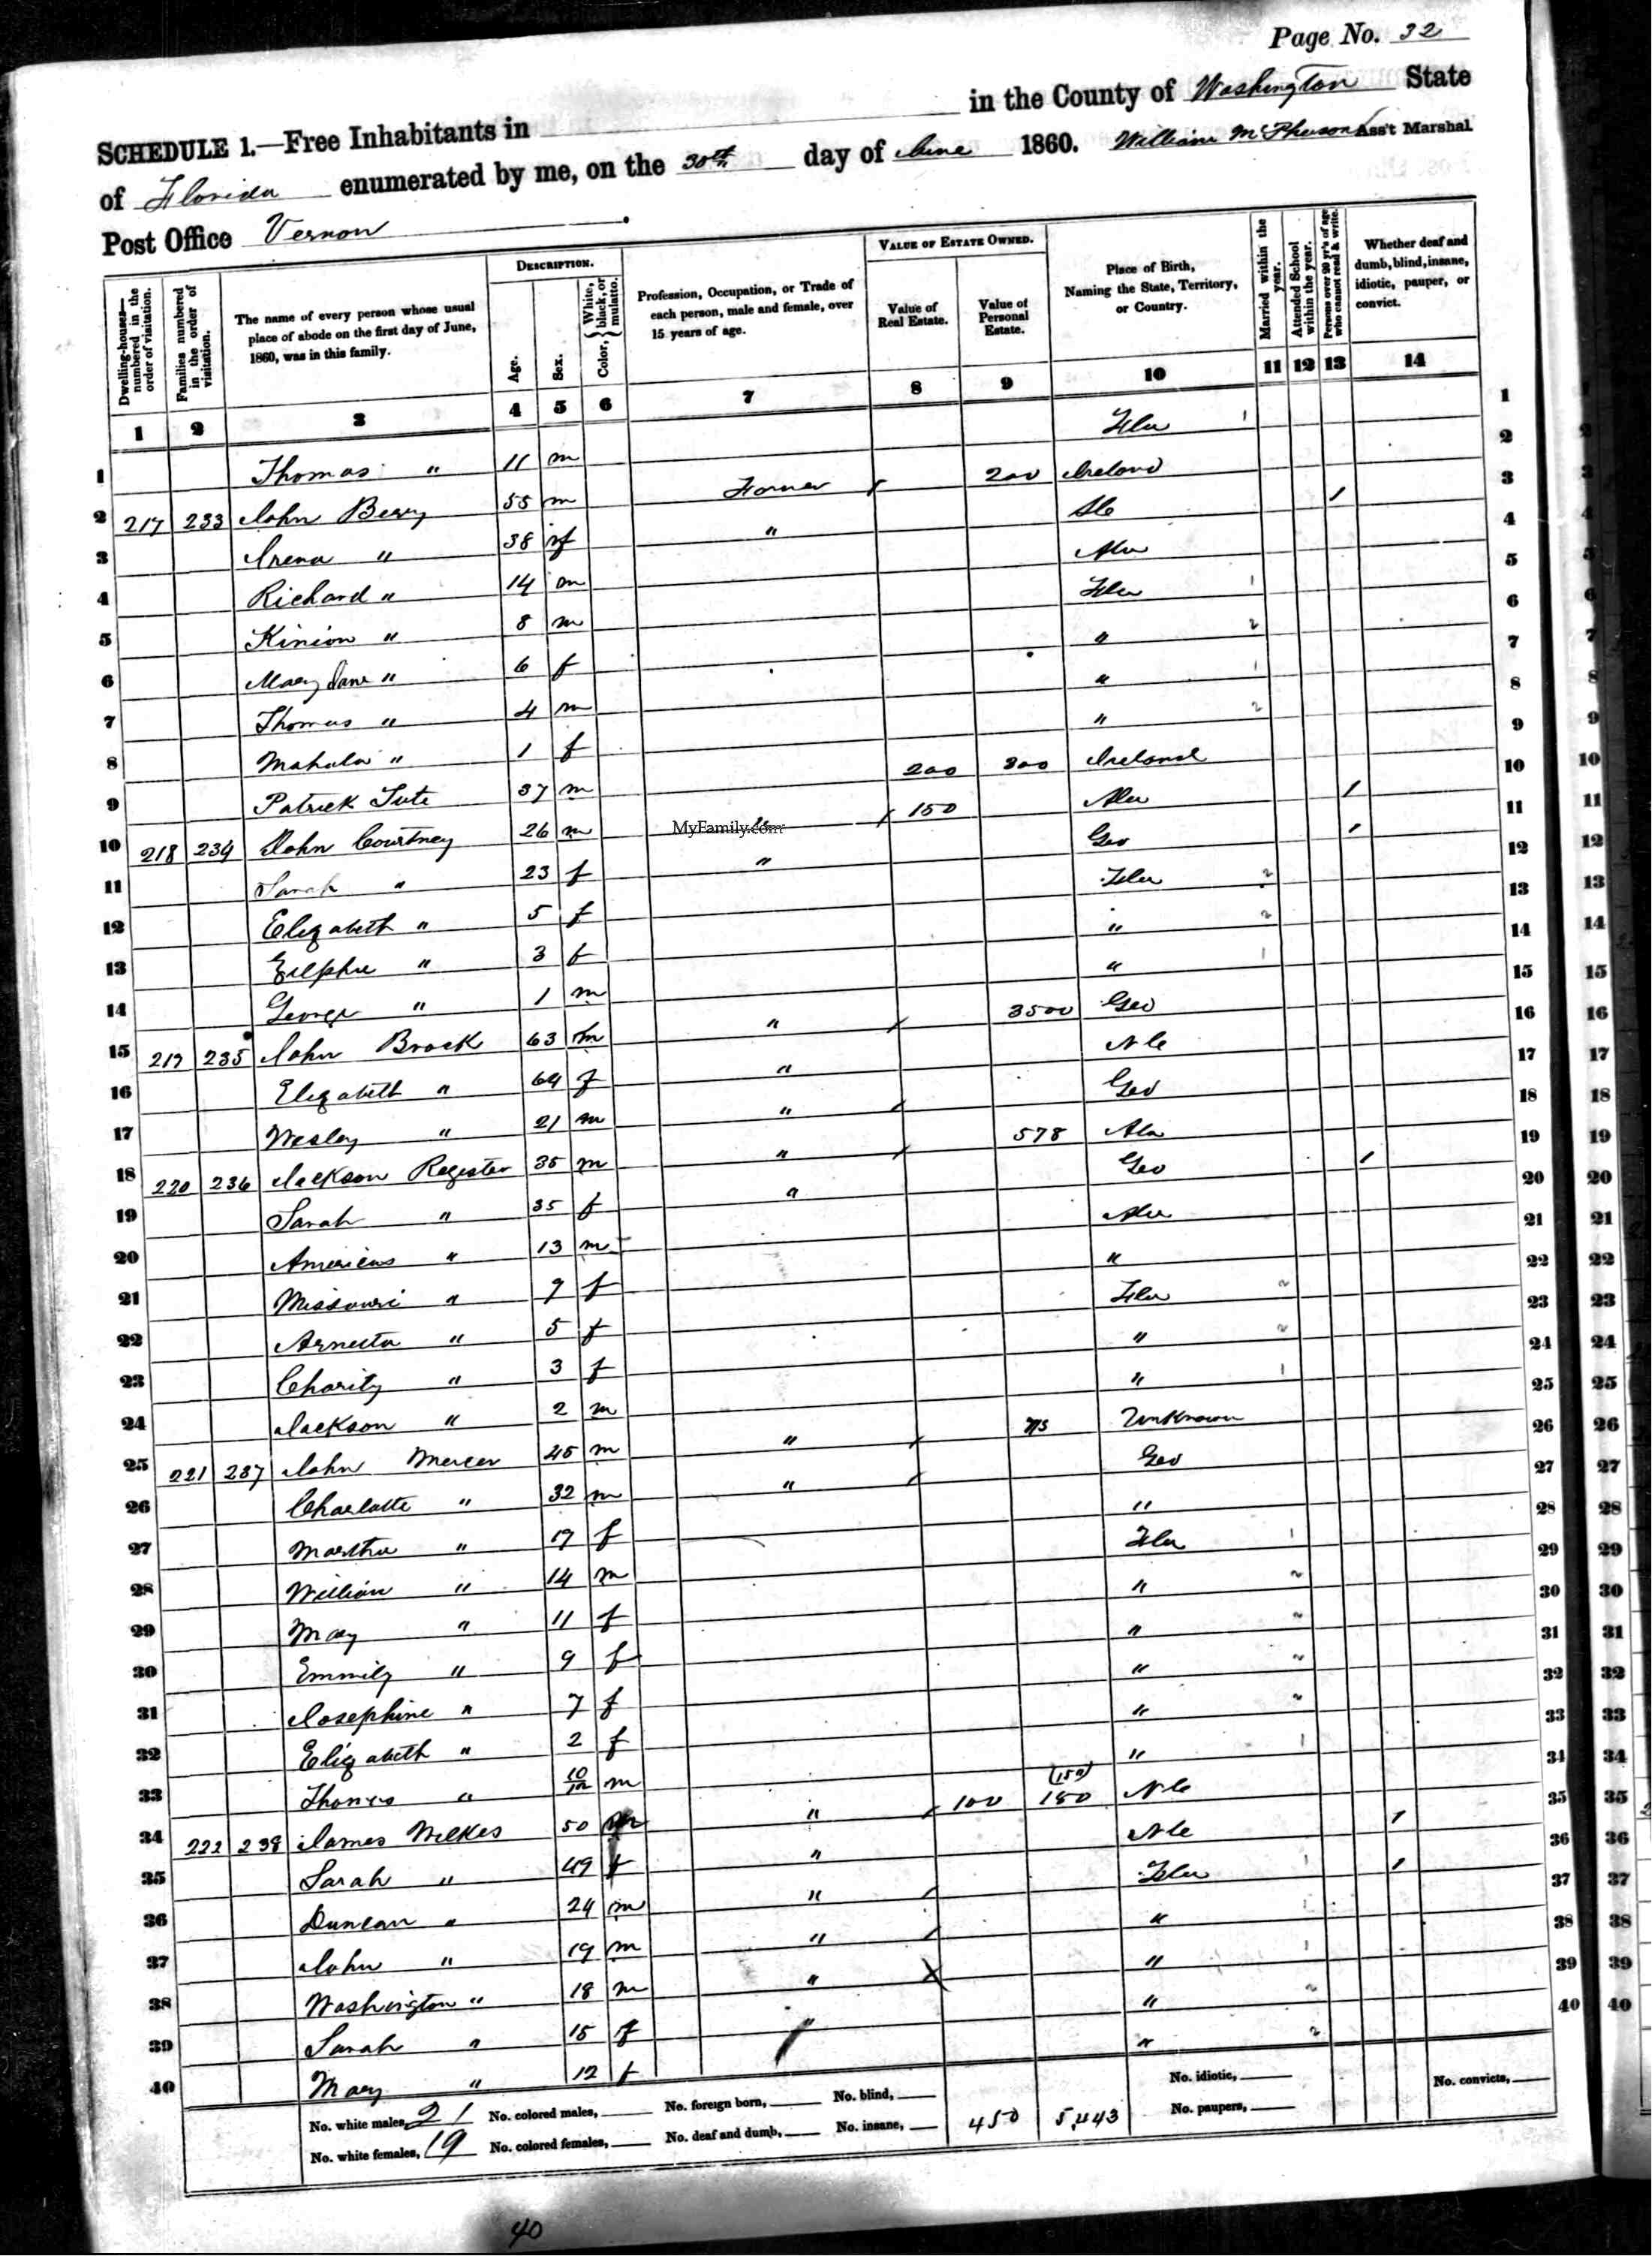 Page No. 32
SCHEDULE 1.—Free Inhabitants in in the County of Washington State
of Florida enumerated by me, on the 30th day of June 1860. William McPherson Ass't Marshal
Post Office Vernon.
Dwelling-houses—numbered in the order of visitation. Families numbered in the order of visitation. The name of every person whose usual place of abode on the first day of June, 1860, was in this family. DESCRIPTION. Age. Sex. Color, { White, black, or mulatto. Profession, Occupation, or Trade of each person, male and female, over 15 years of age. VALUE OF ESTATE OWNED. Value of Real Estate. Value of Personal Estate. Place of Birth, Naming the State, Territory, or Country. Married within the year. Attended School within the year. Persons over 20 yr's of age who cannot read & write. Whether deaf and dumb, blind, insane, idiotic, pauper, or convict.
1 2 3 4 5 6 7 8 9 10 11 12 13 14
1 Thomas " 11 m Fla 1 1
2 217 233 John Berry 55 m Farmer / 200 Ireland 2
3 Irena " 38 f " So / 3
4 Richard " 14 m Ala 4
5 Kinion " 8 m Fla 1 5
6 Mary Jane " 6 f " 2 6
7 Thomas " 4 m " 1 7
8 Mahala " 1 f " 2 8
9 Patrick Tute 37 m 200 300 Ireland 9
10 218 234 John Courtney 26 m " / 150 Ala / 10
11 Sarah " 23 f " Geo / 11
12 Elizabeth " 5 f Fla 2 12
13 Zilpha " 3 f " 2 13
14 George " 1 m " 1 14
15 219 235 John Brock 63 m " / 3500 Geo 15
16 Elizabeth " 64 f " N C 16
17 Wesley " 21 m " / Geo 17
18 220 236 Jackson Register 35 m " / 578 Ala 18
19 Sarah " 35 f " Geo / 19
20 Americus " 13 m Ala 20
21 Missouri " 9 f " 21
22 Arnesta " 5 f Fla 2 22
23 Charity " 3 f " 2 23
24 Jackson " 2 m " 1 24
25 221 237 John Mercer 45 m " / 715 Unknown 25
26 Charlotte " 32 m " / Geo 26
27 Martha " 17 f " 27
28 William " 14 m Fla 1 28
29 Mary " 11 f " 2 29
30 Emmily " 9 f " 2 30
31 Josephine " 7 f " 2 31
32 Elizabeth " 2 f " 2 32
33 Thomas " 10/12 m " 1 33
34 222 238 James Wilkes 50 m " / 100 (150) 150 N C 34
35 Sarah " 49 f " N C / 35
36 Duncan " 24 m " / Fla 1 / 36
37 John " 19 m " / " 1 37
38 Washington " 18 m " X " 1 38
39 Sarah " 15 f " " 2 39
40 Mary " 12 f " 2 40
No. white males, 21 No. colored males, No. foreign born, No. blind, No. idiotic, No. convicts,
No. white females, 19 No. colored females, No. deaf and dumb, No. insane, 450 5,443 No. paupers,
40
MyFamily.com